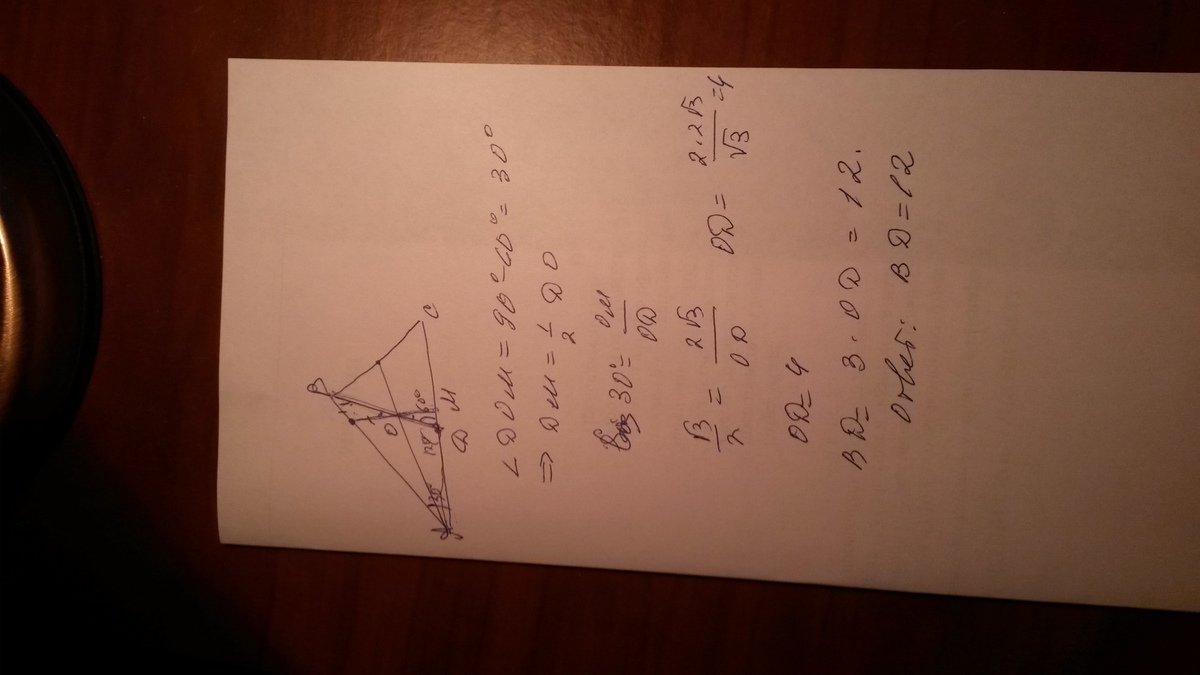 B
O
120°
60°
30°
A
D
M
C
∠DOM = 90° - 60° = 30°
⇒ DM = 1/2 DO
Cos 30° = OM/OD
√3/2 = 2√3/OD OD = 2·2√3/√3 = 4
OD = 4
BD = 3 · OD = 12.
Ответ: BD = 12